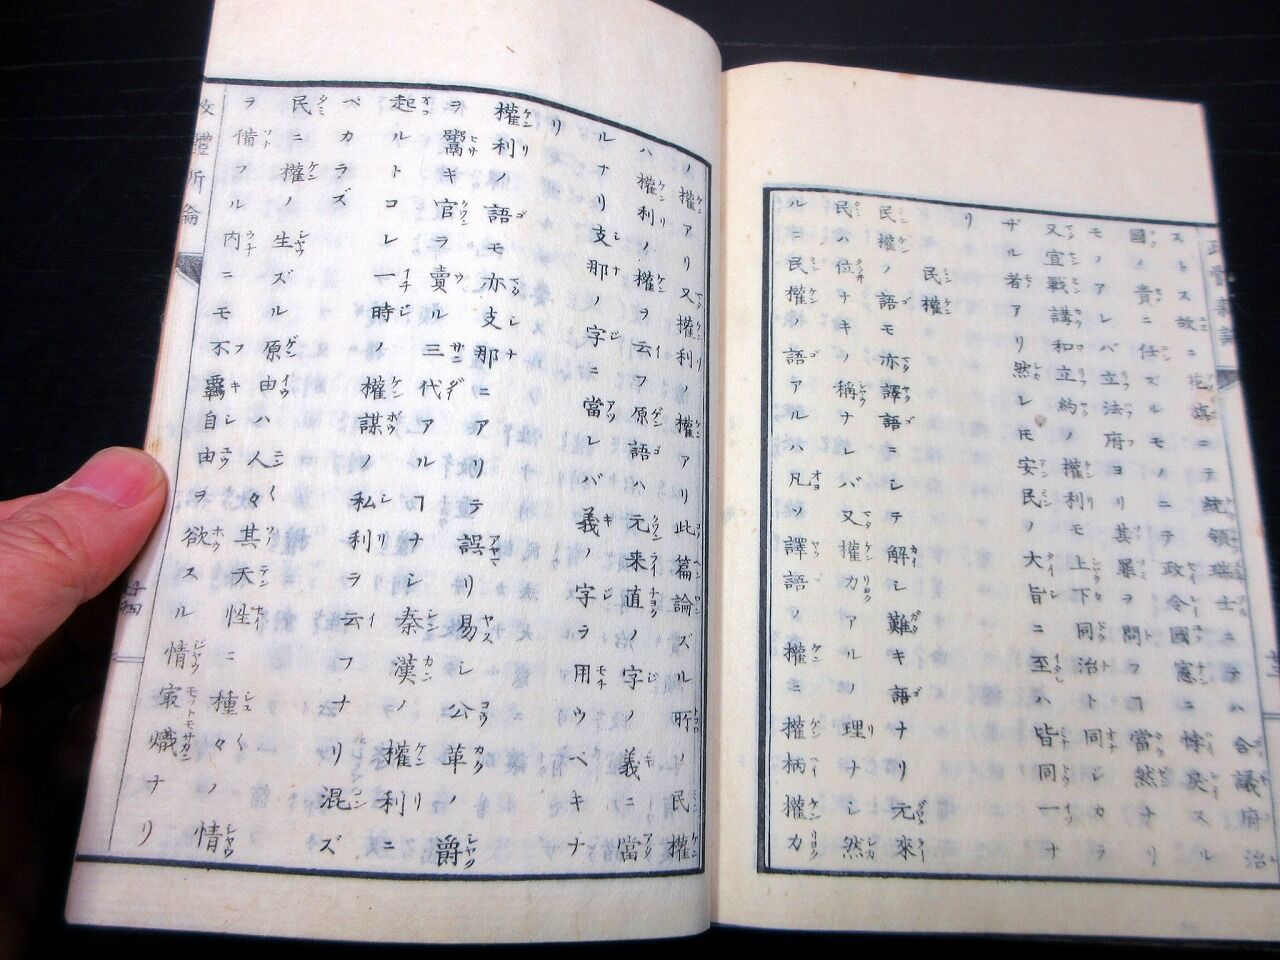 ストス故ニ花旗ニテ統領瑞士ニテハ合議府治
國ノ責ニ任ズルモノニテ政令國憲ニ悖戻スル
モノアレバ立法府ヨリ其罪ヲ問フコ當然ナリ
又宣戰講和立約ノ權利モ上下同治ト同ジカラ
ザル者アリ然レ𪜈安民ノ大旨ニ至ハ皆同一ナ
リ
民權
民權ノ語モ亦譯語ニシテ解シ難キ語ナリ元來
民ハ位ナキノ稱ナレバ又權力アルノ理ナシ然
ルニ民權ノ語アルハ凡ソ譯語ノ權ニ權柄權力
ノ權アリ又權利ノ權アリ此篇論ズル所ノ民權
ハ權利ノ權ヲ云フ原語ハ元来直ノ字ノ義ニ當
ルナリ支那ノ字ニ當レバ義ノ字ヲ用ウベキナ
リ
權利ノ語モ亦支那ニアリテ誤リ易シ公革ノ爵
ヲ鬻キ官ヲ賣ル三代アルヿナシ秦漢ノ權利ニ
起ルトコレ一時ノ權謀ノ私利ヲ云フナリ混ズ
ベカラズ
民ニ權ノ生ズル原由ハ人々其天性ニ種々ノ情
ヲ備フル内ニモ不羈自由ヲ欲スル情㝡熾ナリ